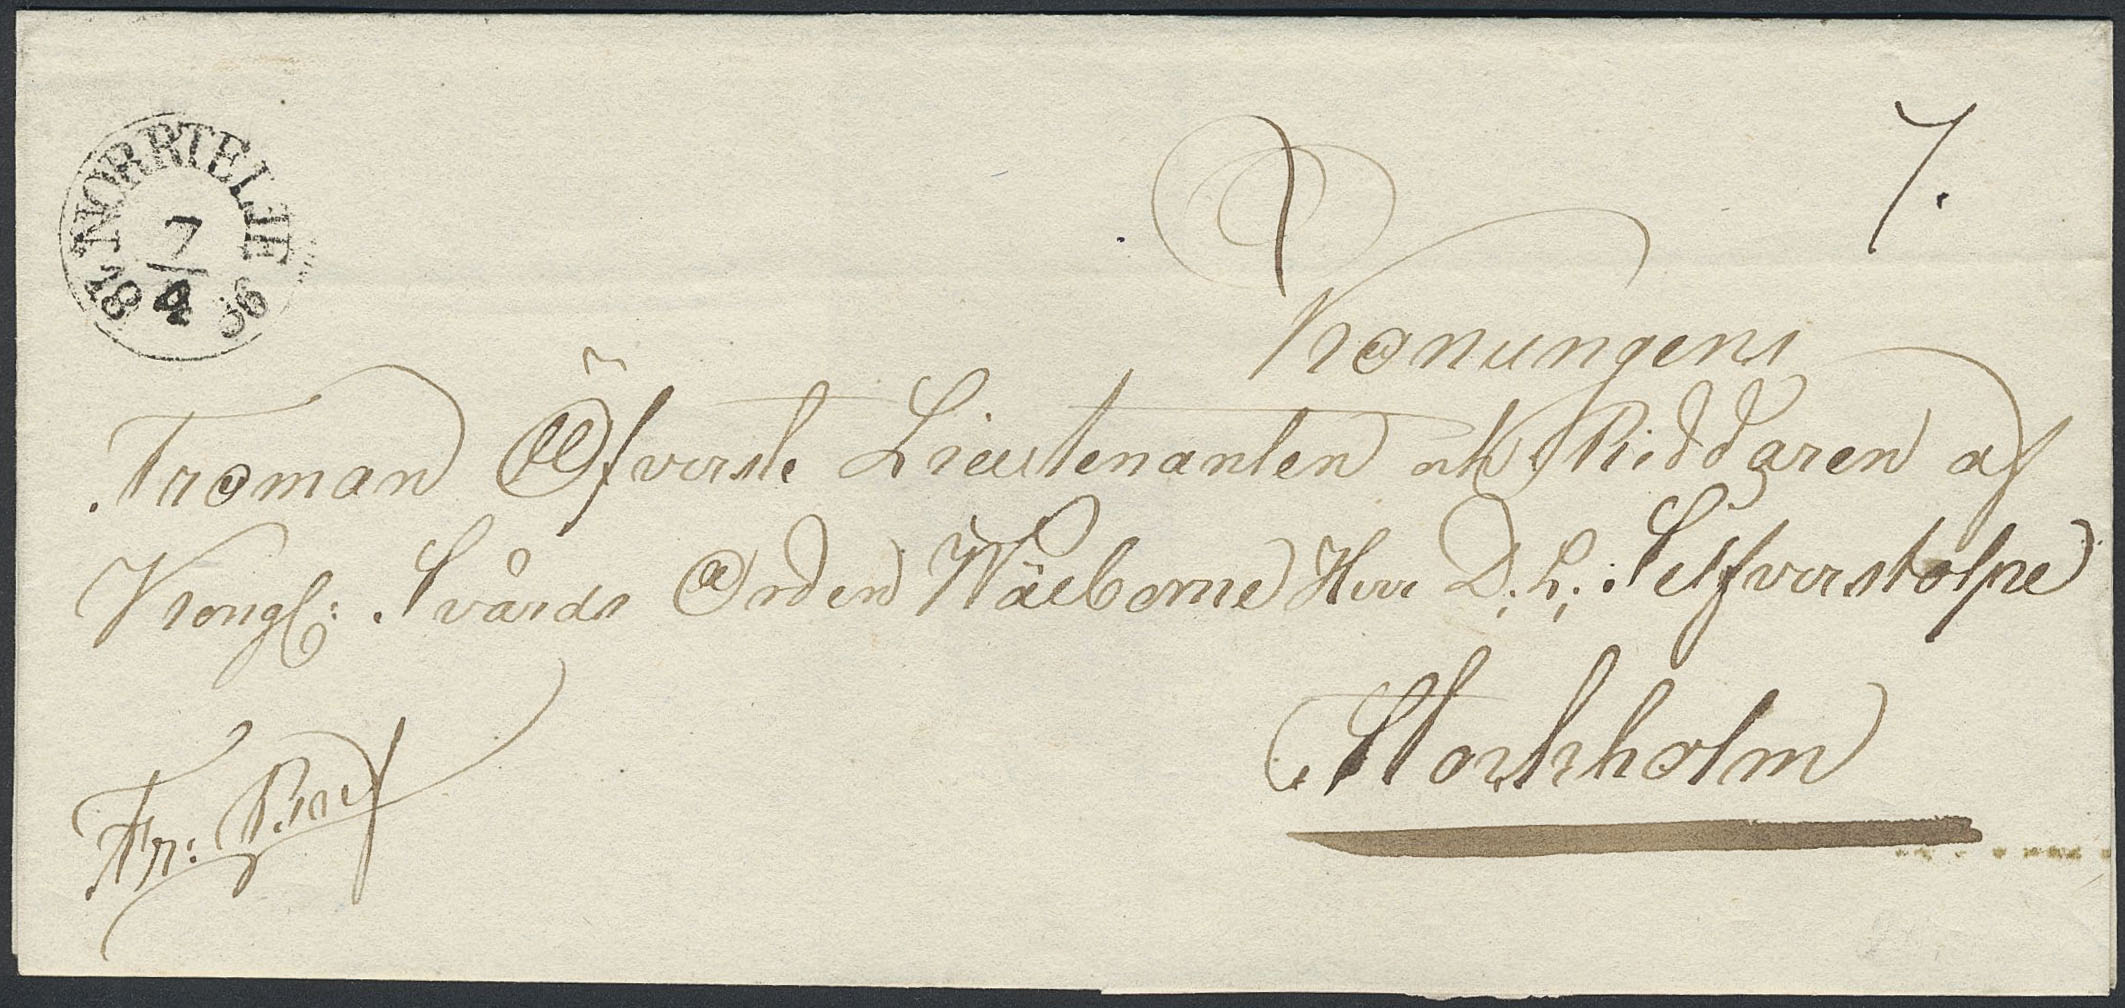 NORRTELJE
7
4
18 36
7.
Konungens
Troman Öfverste Lieutenanten och Riddaren af
Kongl: Svärds Orden Wälborne Herr D: L: Silfverstolpe
Stockholm
Fr: Bref